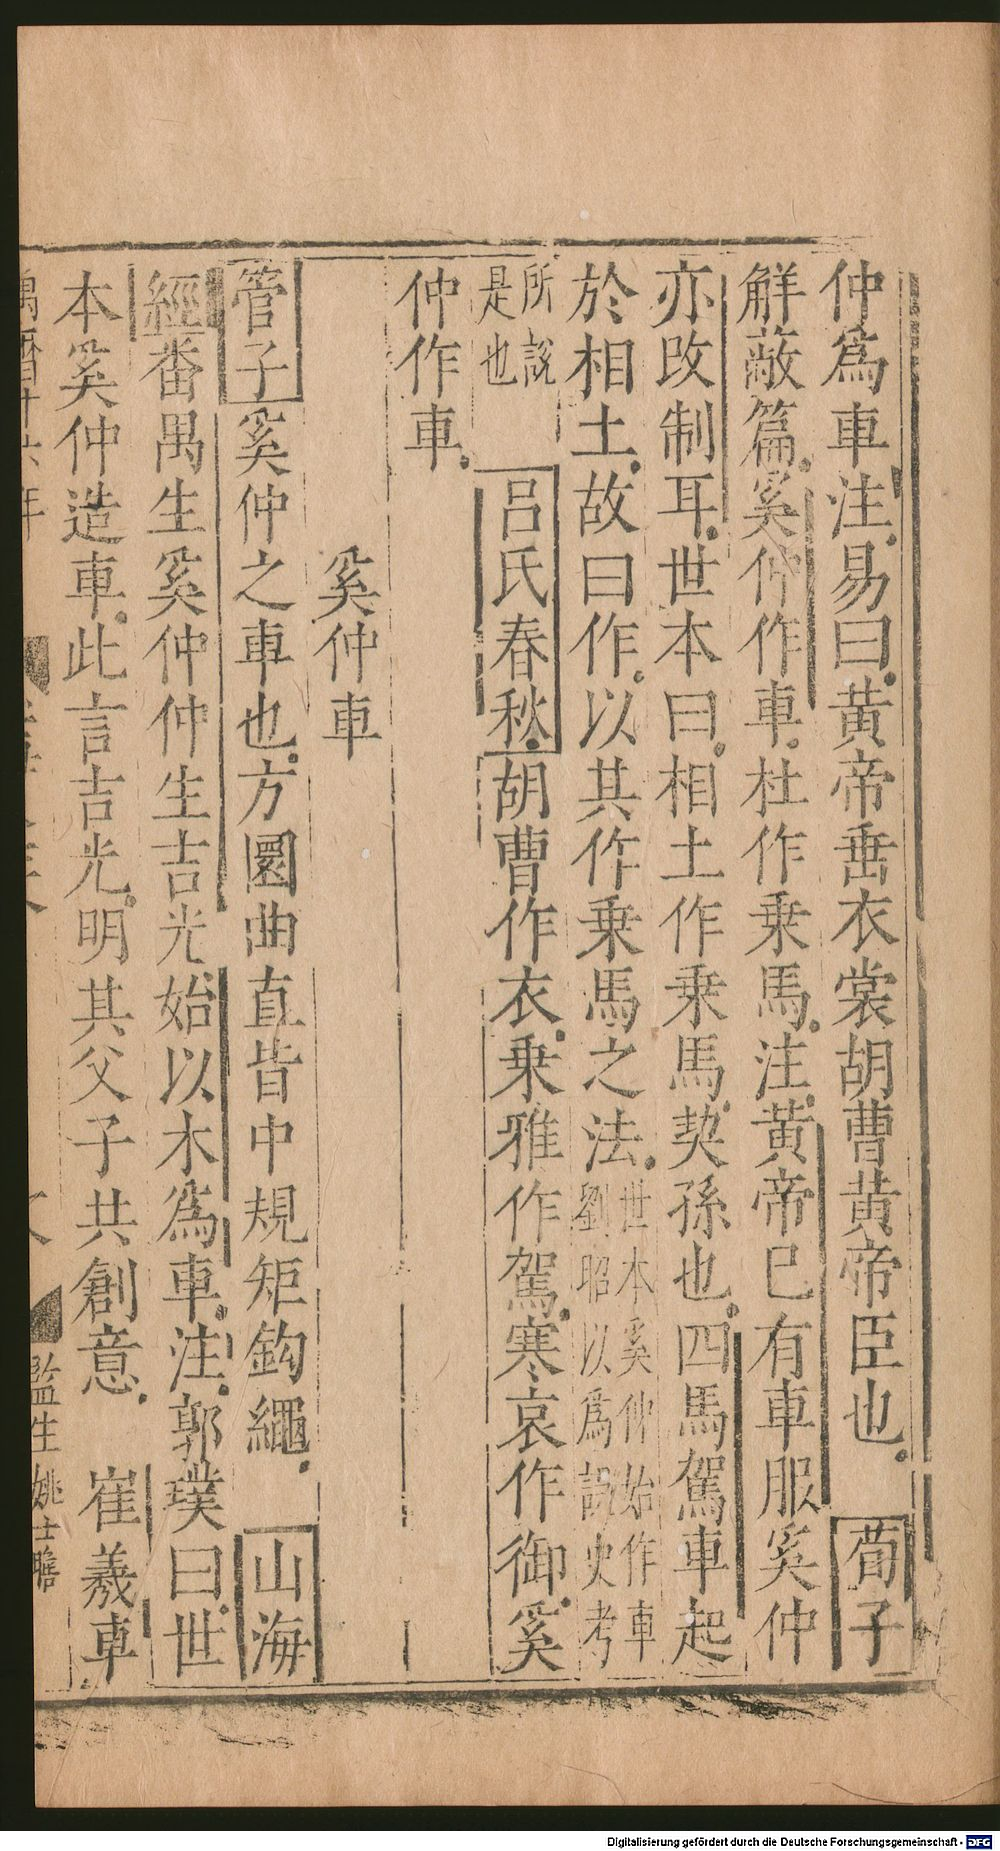 仲爲車注易曰黃帝垂衣裳胡曹黃帝臣也荀子
解蔽篇奚仲作車杜作乗馬注黃帝巳有車服奚仲
亦改制耳世本曰相土作乗馬契孫也四馬駕車起
於相土故曰作以其作乗馬之法世本奚仲始作車
劉昭以爲記史考
所說
是也
吕氏春秋胡曹作衣乗雅作駕寒哀作御奚
仲作車
奚仲車
管子奚仲之車也方圜曲直皆中規矩鈎繩山海
經番禺生奚仲仲生吉光始以木爲車注郭璞曰世
本奚仲造車此言吉光明其父子共創意崔羲車
監生姚士
Digitalisierung gefördert durch die Deutsche Forschungsgemeinschaft - DFG